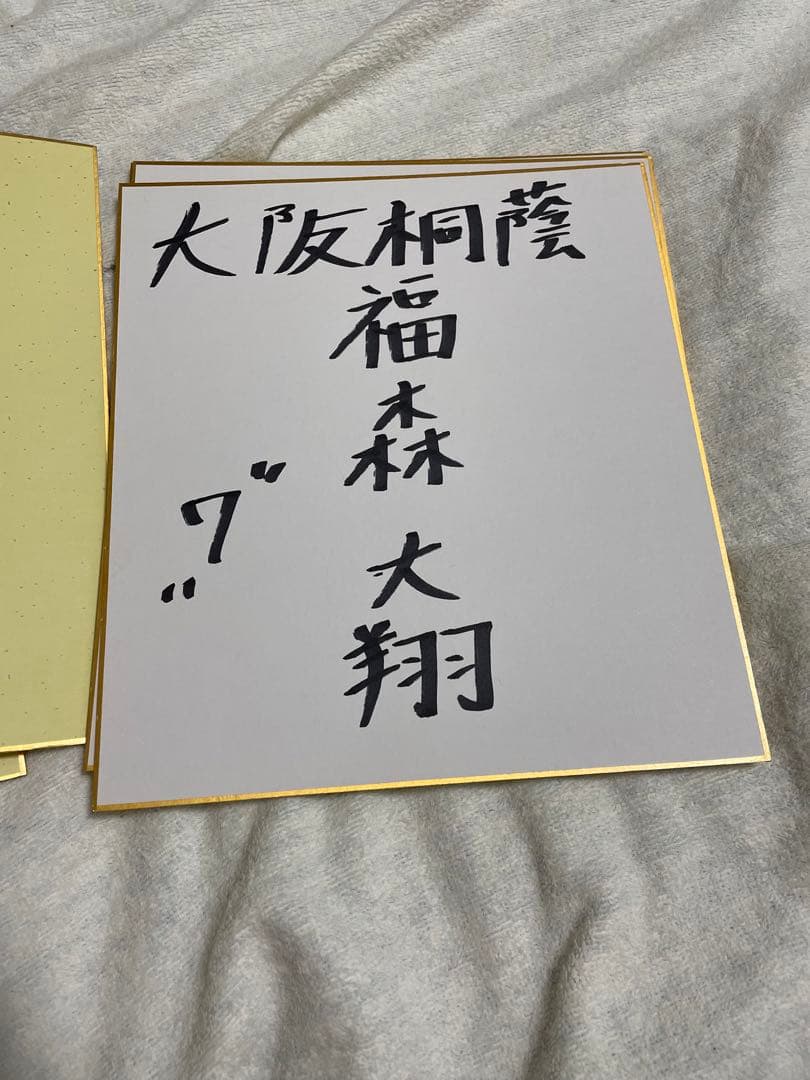 大阪桐蔭
福森大翔
"7"